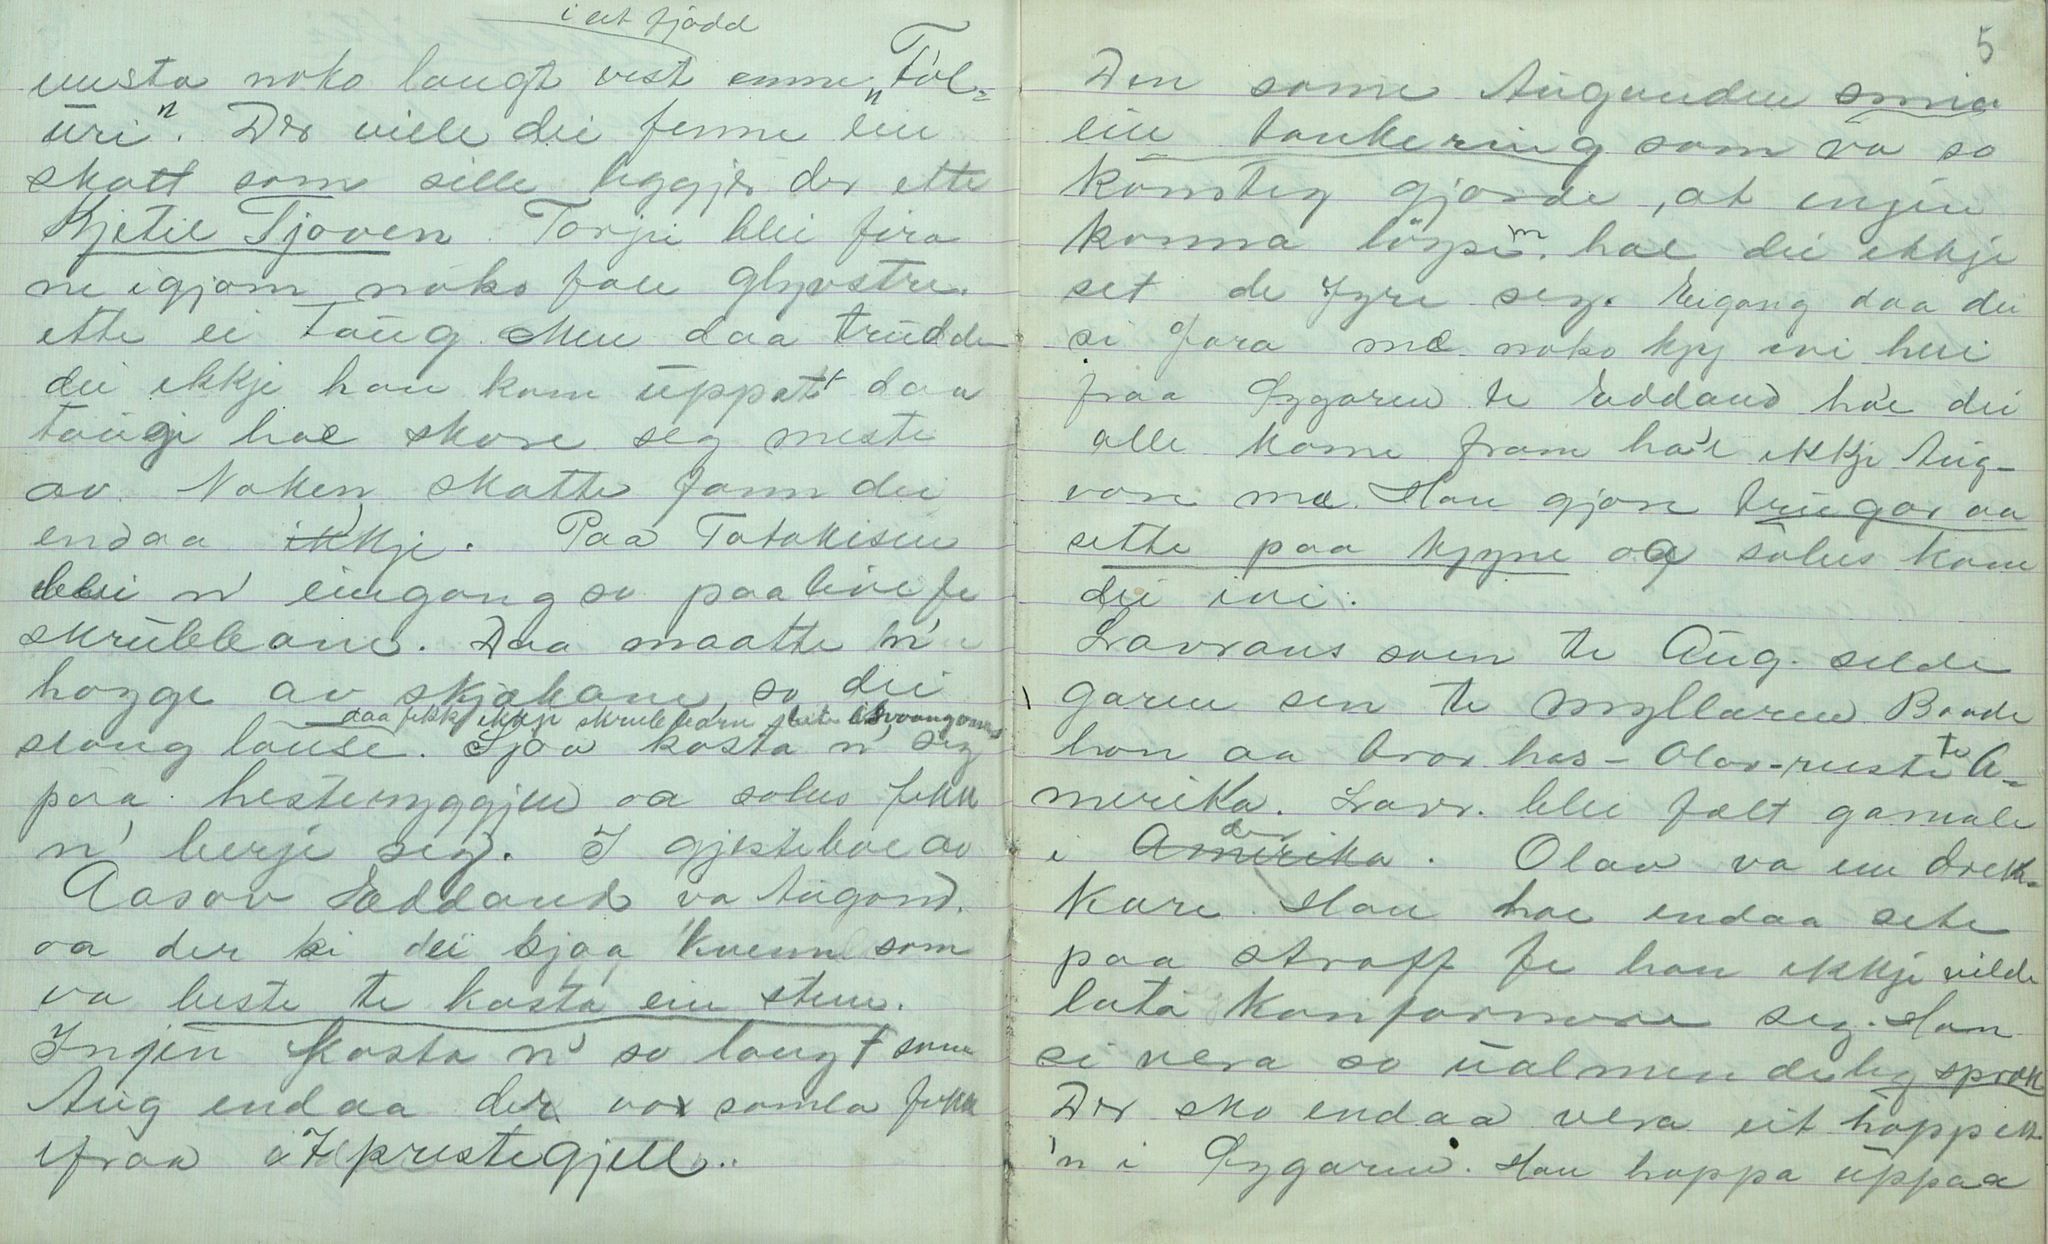 i eit fjødd
uusta noko langt vest emne "Tol-
uri". Der ville dei finne ein
skatt som sille liggjer der ette
Kjetil Tjoven. Torjei blei fira
ne igjøm noko fæle glyvstre.
ette ei taug. Men daa trudde
dei ikkje han kom uppatt daa
taugi hae skore seg meste
av. Noken skatte fann dei
endaa ikkje. Paa Totakisen
blei n' eingong so paalive fe
skrubbane. Daa maatte n'
hogge av skjækane, so dei
daa fekk ikkje skrubbarn slite
slong lause. Sjøa kasta n' seg
paa hesteryggjen oa solus fekk
n' berje seg. I gjesteboe av
Aasov Eddland va Augond.
oa der ki dei sjaa kvenn som
va beste te kasta ein stein.
Ingjen kasta n' so langt som
Aug endaa der vox samla folk
ifraa 7 prestegjell.
5
Den same Augonden smia
ein tankering som va so
kønsteg gjorde, at ingjen
konna løyse'n. hae dei ikkje
set de fyre seg. Eigong daa dei
si fara me noko kjy ivi heii
fraa Øygaren te Eddland hae dei
alle kome fram ha'e ikkje Aug-
von me. Han gjore trugor aa
sette paa kjyne oa solus kom
dei ivi.
Lavrans soen te Aug. selde
garen sen te Myllaren. Baade
han aa bror has - Olav - reiste te A-
merika. Lavr. blei fælt gamale
i Amerika der. Olav va ein drek-
kare. Han hae endaa sete
paa straff fe han ikkje vilde
lata konfermere seg. Han
si vera so ualmendeleg spræk
Der sko endaa vera eit hopp ette
'n i Øygaren. Han hoppa uppaa